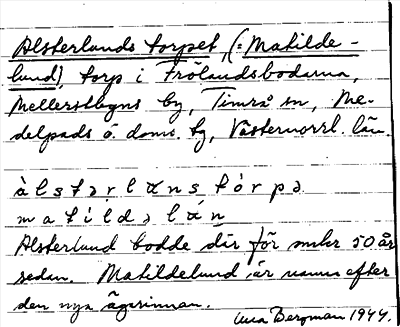 Alsterlunds torpet, (= Matilde-
lund), torp i Frölandsbodarna,
Mellerstbyns by, Timrå sn, Me-
delpads ö. doms. tg, Västernorrl. län.
àlstərlɯns tórpə
matíldəlɯ́n
Alsterlund bodde där för omkr 50 år
sedan. Matildelund är namn efter
den nya ägarinnan.
Bergman 1944.